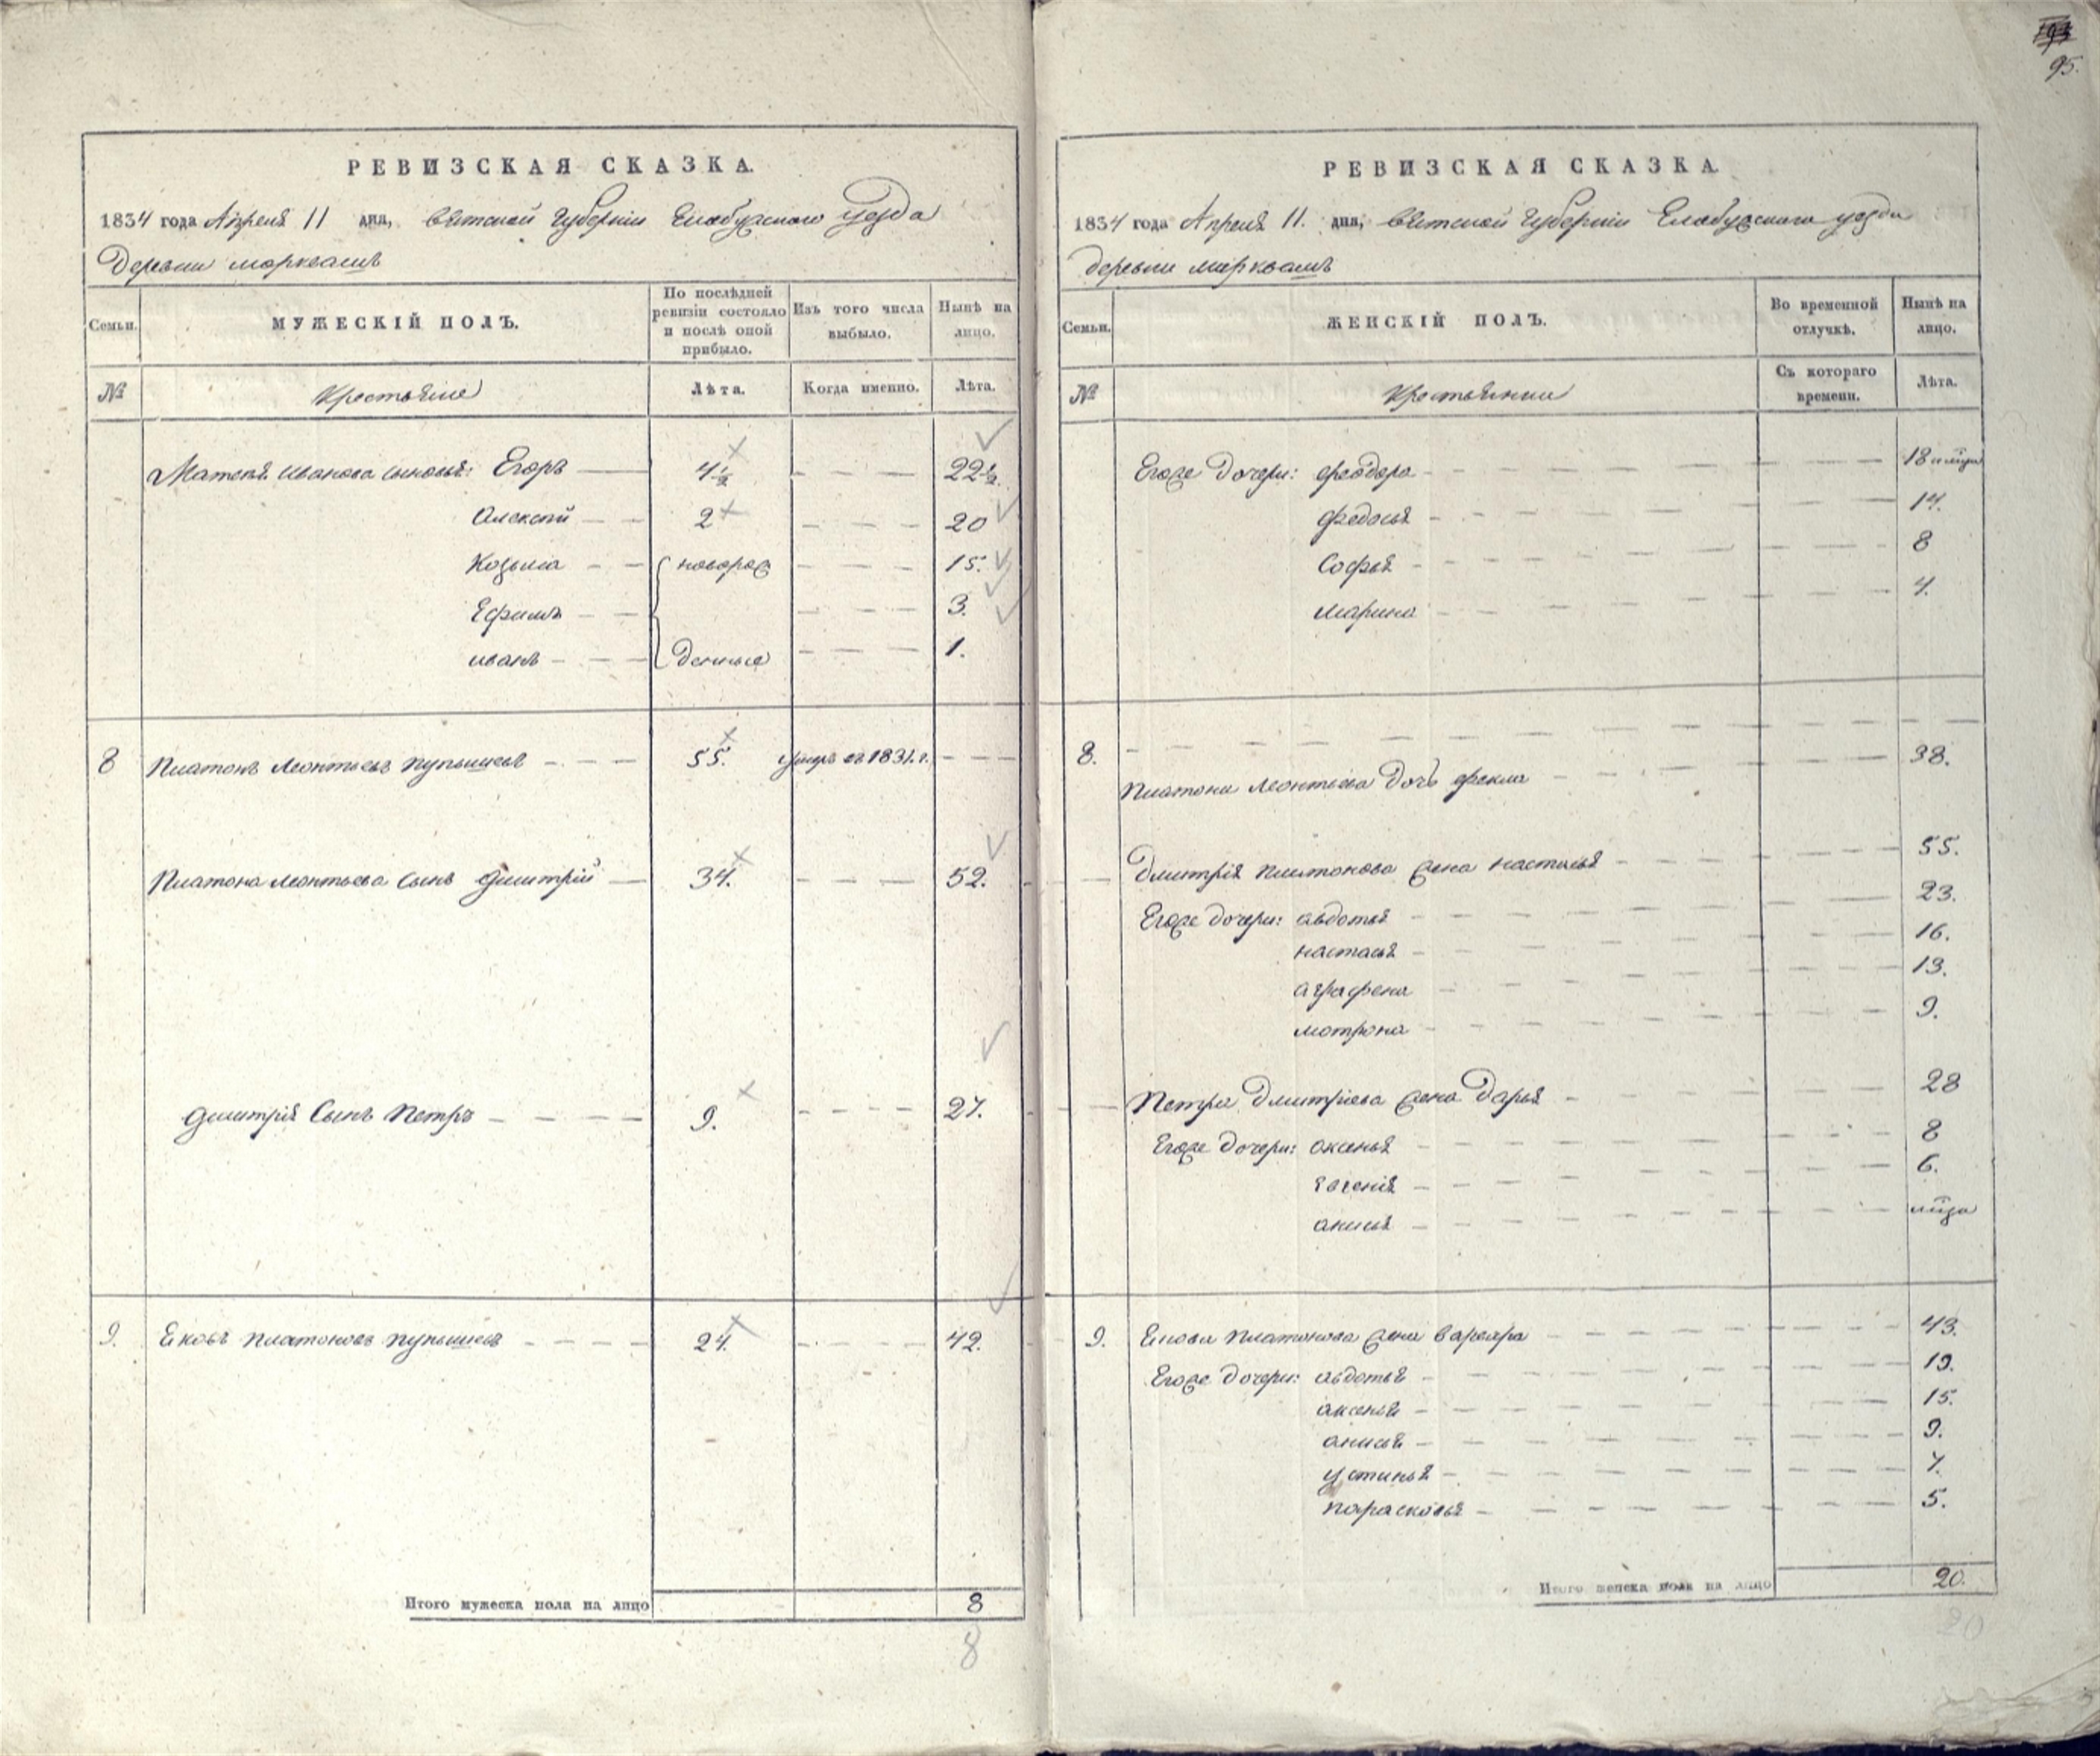 95.
РЕВИЗСКАЯ СКАЗКА.
1834 года Апреля 11 дня, Вятской Губернiи Елабужскаго уезда
Деревни Маркваши
Семьи. МУЖЕСКIЙ ПОЛЪ. По послѣдней ревизiи состояло и послѣ оной прибыло. Изъ того числа выбыло. Нынѣ на лицо.
№ Крестьяне Лѣта. Когда именно. Лѣта.
Матвея Иванова сыновья: Егоръ 4½ 22½.
Алексей 2 20
Козьма новорож 15.
Ефимъ 3.
иванъ денные 1.
8 Платонъ Леонтьевъ Пупышевъ 55. умеръ въ 1831. г.
Платона Леонтьева сынъ Дмитрiй 34. 52.
Дмитрiя Сынъ Петръ 9. 27.
9. Яковъ Платоновъ Пупышевъ 24. 42.
Итого мужеска пола на лицо 8
8
РЕВИЗСКАЯ СКАЗКА.
1834 года Апреля 11. дня, Вятской Губернiи Елабужскаго уезда
деревни Маркваши
Семьи. ЖЕНСКIЙ ПОЛЪ. Во временной отлучкѣ. Нынѣ на лицо.
№ Крестьянки Съ котораго времени. Лѣта.
Егоже дочери: феодора 18
федосья 14.
Софья 8
марина 4.
8.
Платона Леонтьева дочь фекла 38.
Дмитрiя Платонова жена настасья 55.
Егоже дочери: авдотья 23.
настасья 16.
аграфена 13.
мотрона 9.
Петра Дмитрiева жена Дарья 28
Егоже дочери: оксенья 8
Евгенiя 6.
анисья
9. Якова Платонова жена варвара 43.
Егоже дочери: авдотья 19.
аксенья 15.
анисья 9.
устинья 7.
парасковья 5.
Итого женска пола на лицо 20.
20